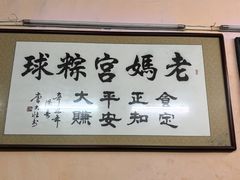 老媽宮粽球
食定
正知
平安
大賺